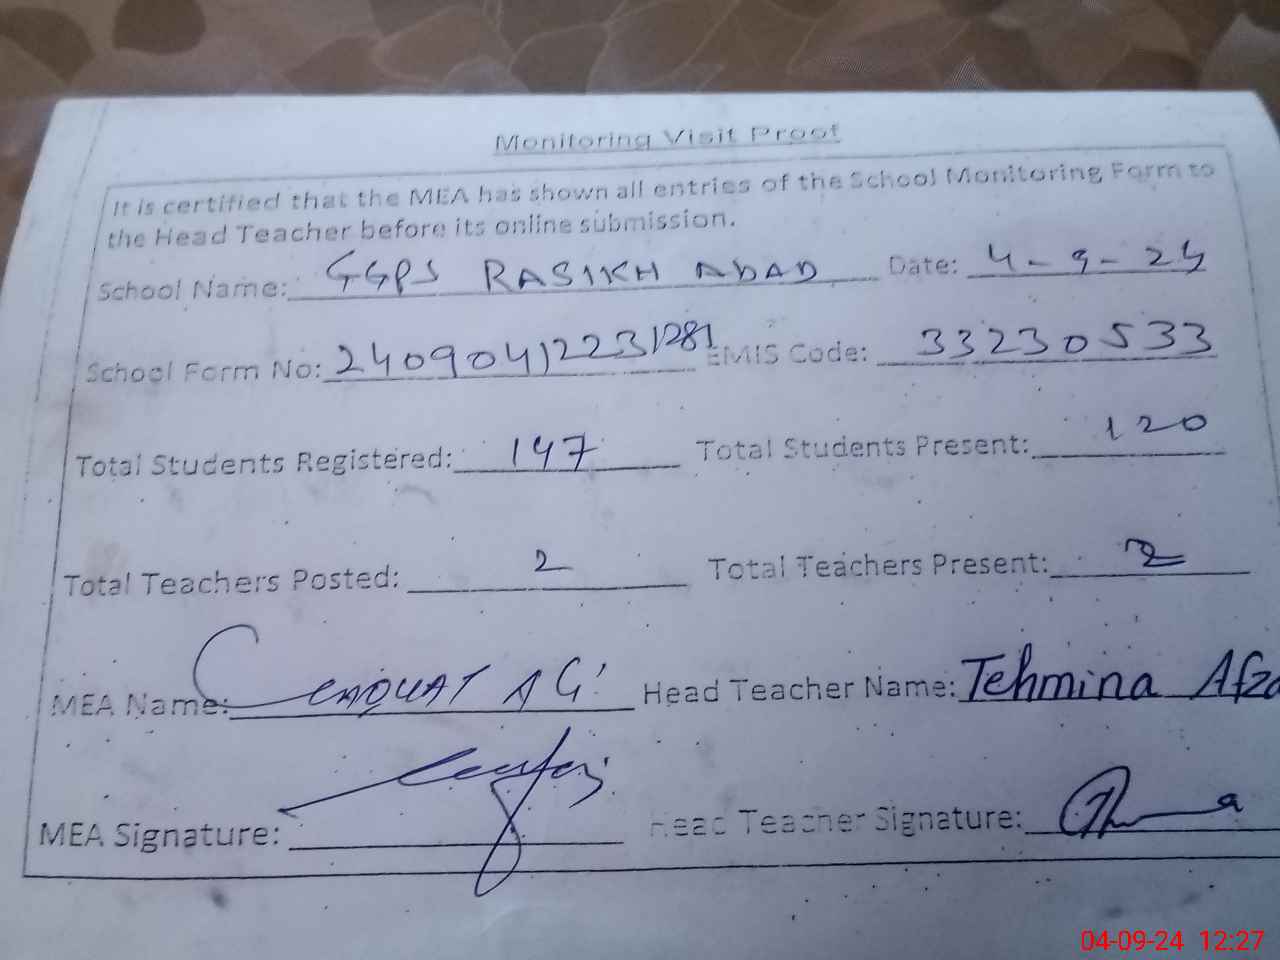 Monitoring Visit Proof
It is certified that the MEA has shown all entries of the School Monitoring Form to
the Head Teacher before its online submission.
School Name: GGPS RASIKH ABAD Date: 4-9-24
School Form No: 24090412231281 EMIS Code: 33230533
Total Students Registered: 147 Total Students Present: 120
Total Teachers Posted: 2 Total Teachers Present: 2
MEA Name: Head Teacher Name: Tehmina
MEA Signature: Head Teacher Signature:
04-09-24 12:27